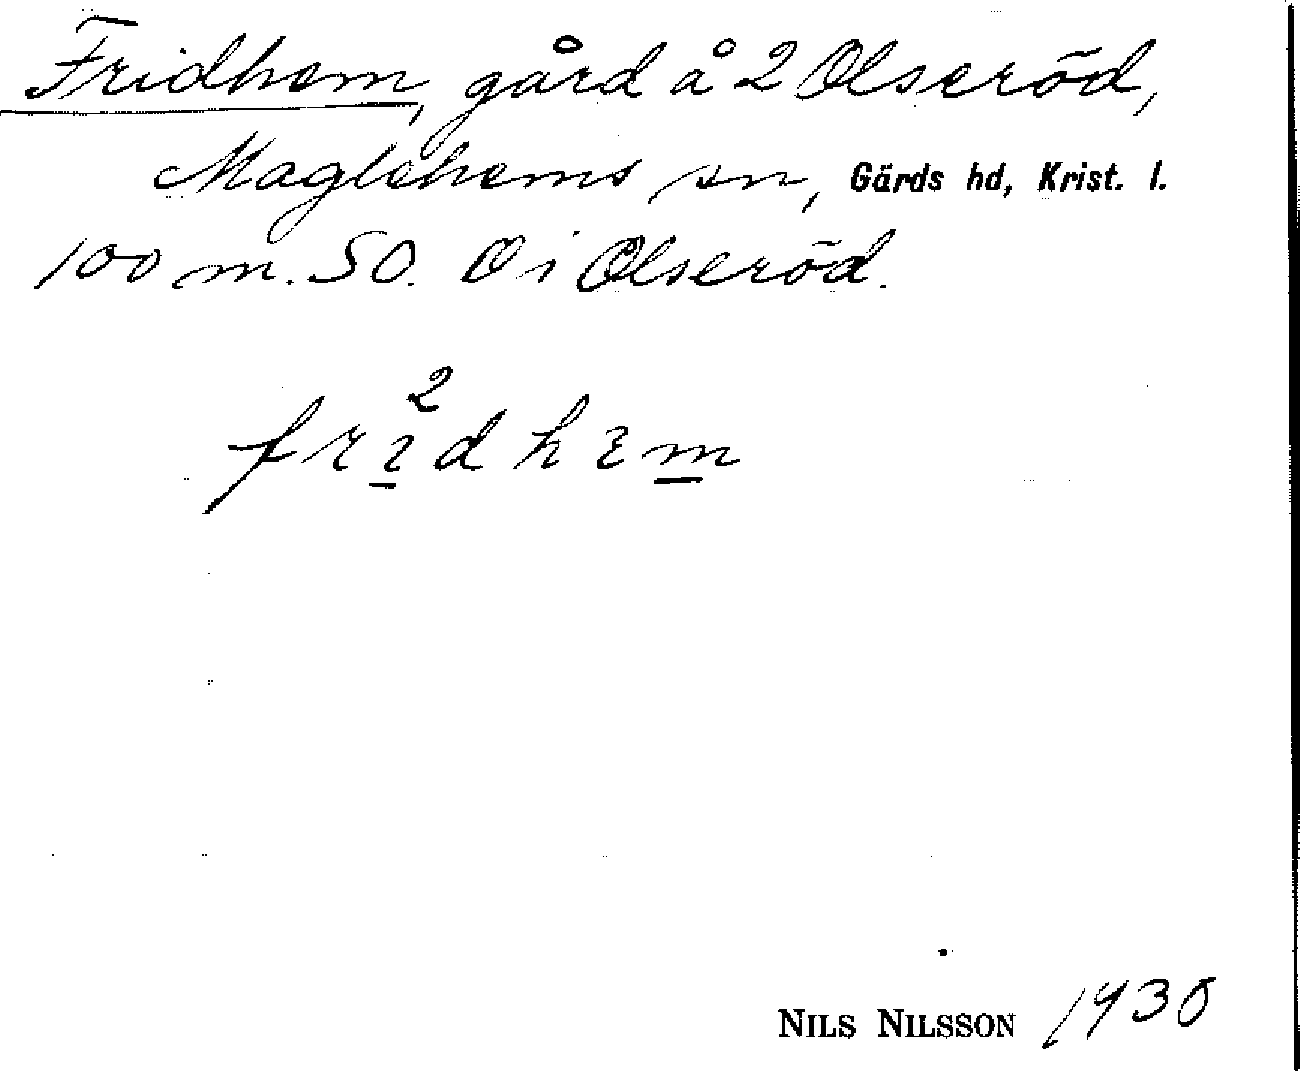 Fridhem, gård å 2 Olseröd,
Maglehems sn, Gärds hd, Krist. l.
100 m. SO. O i Olseröd.
2
frɩdhɛm
NILS NILSSON 1930